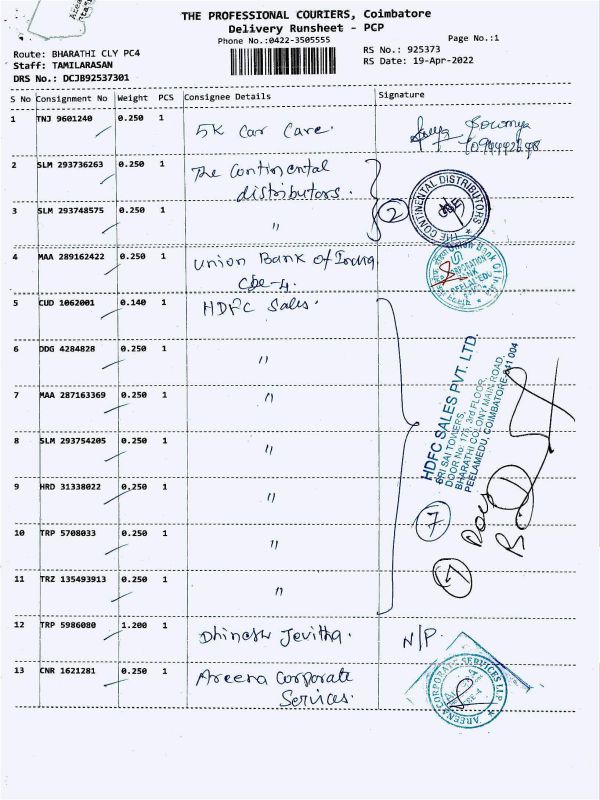 THE PROFESSIONAL COURIERS, Coimbatore
Delivery Runsheet - PCP
Phone No.:0422-3505555
Page No.:1
Route: BHARATHI CLY PC4
RS No.: 925373
Staff: TAMILARASAN
RS Date: 19-Apr-2022
DRS No.: DCJB92537301
S No Consignment No Weight PCS Consignee Details Signature
1 TNJ 9601240 0.250 1 5K Car Care. Sowmya
2 SLM 293736263 0.250 1 The Continental
distributors.
3 SLM 293748575 0.250 1 " 2 THE CONTINENTAL DISTRIBUTORS
4 MAA 289162422 0.250 1 Union Bank of India
Cbe-4. Union Bank of India
5 CUD 1062001 0.140 1 HDFC Sales.
6 DDG 4284828 0.250 1 "
7 MAA 287163369 0.250 1 "
8 SLM 293754205 0.250 1 "
9 HRD 31338022 0.250 1 "
10 TRP 5708033 0.250 1 "
11 TRZ 135493913 0.250 1 "
HDFC SALES PVT. LTD.
SRI SAI TOWERS,
DOOR No: 175, 3rd FLOOR,
BHARATHI COLONY MAIN ROAD,
PEELAMEDU, COIMBATORE-641 004
7
7
12 TRP 5986080 1.200 1 Dhinesh Jevitha. N/P.
13 CNR 1621281 0.250 1 Areena Corporate
Services. AREENA CORPORATE SERVICES LLP